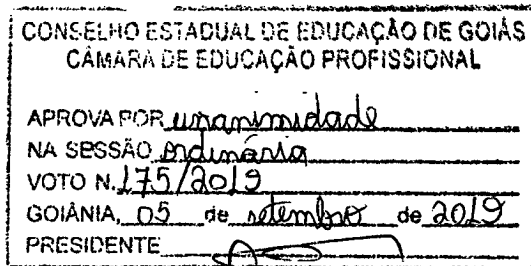 CONSELHO ESTADUAL DE EDUCAÇÃO DE GOIÁS
CÂMARA DE EDUCAÇÃO PROFISSIONAL
APROVA POR unanimidade
NA SESSÃO Ordinária
VOTO N. 175/2019
GOIÂNIA, 05 de setembro de 2019
PRESIDENTE